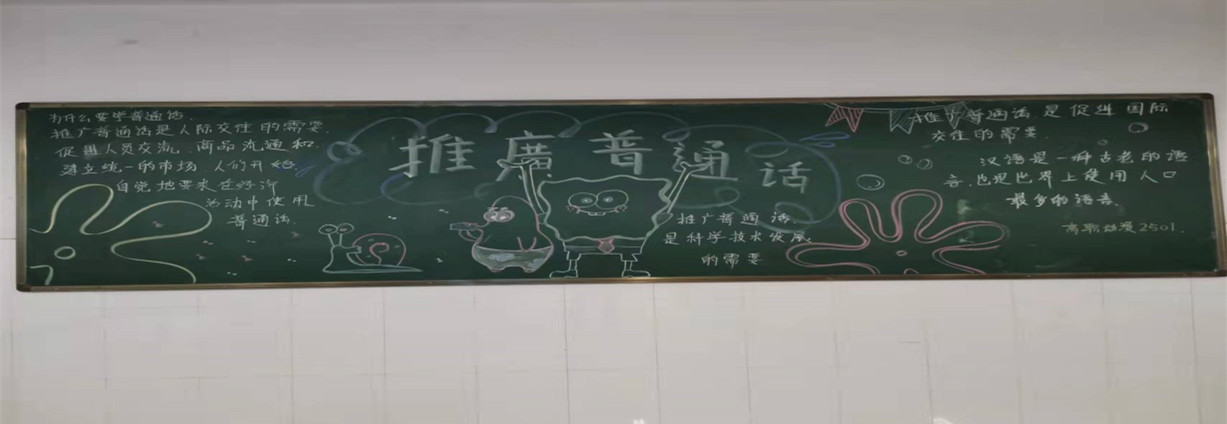 为什么要学普通话
推广普通话是人际交往的需要.
促进人员交流、商品流通和
建立统一的市场 人们开始
自觉地要求在经济
活动中使用
普通话
推廣普通话
推广普通话
是科学技术发展
的需要
推广普通话是促进国际
交往的需要.
汉语是一种古老的语
言,也是世界上使用人口
最多的语言.
高职动漫2501.